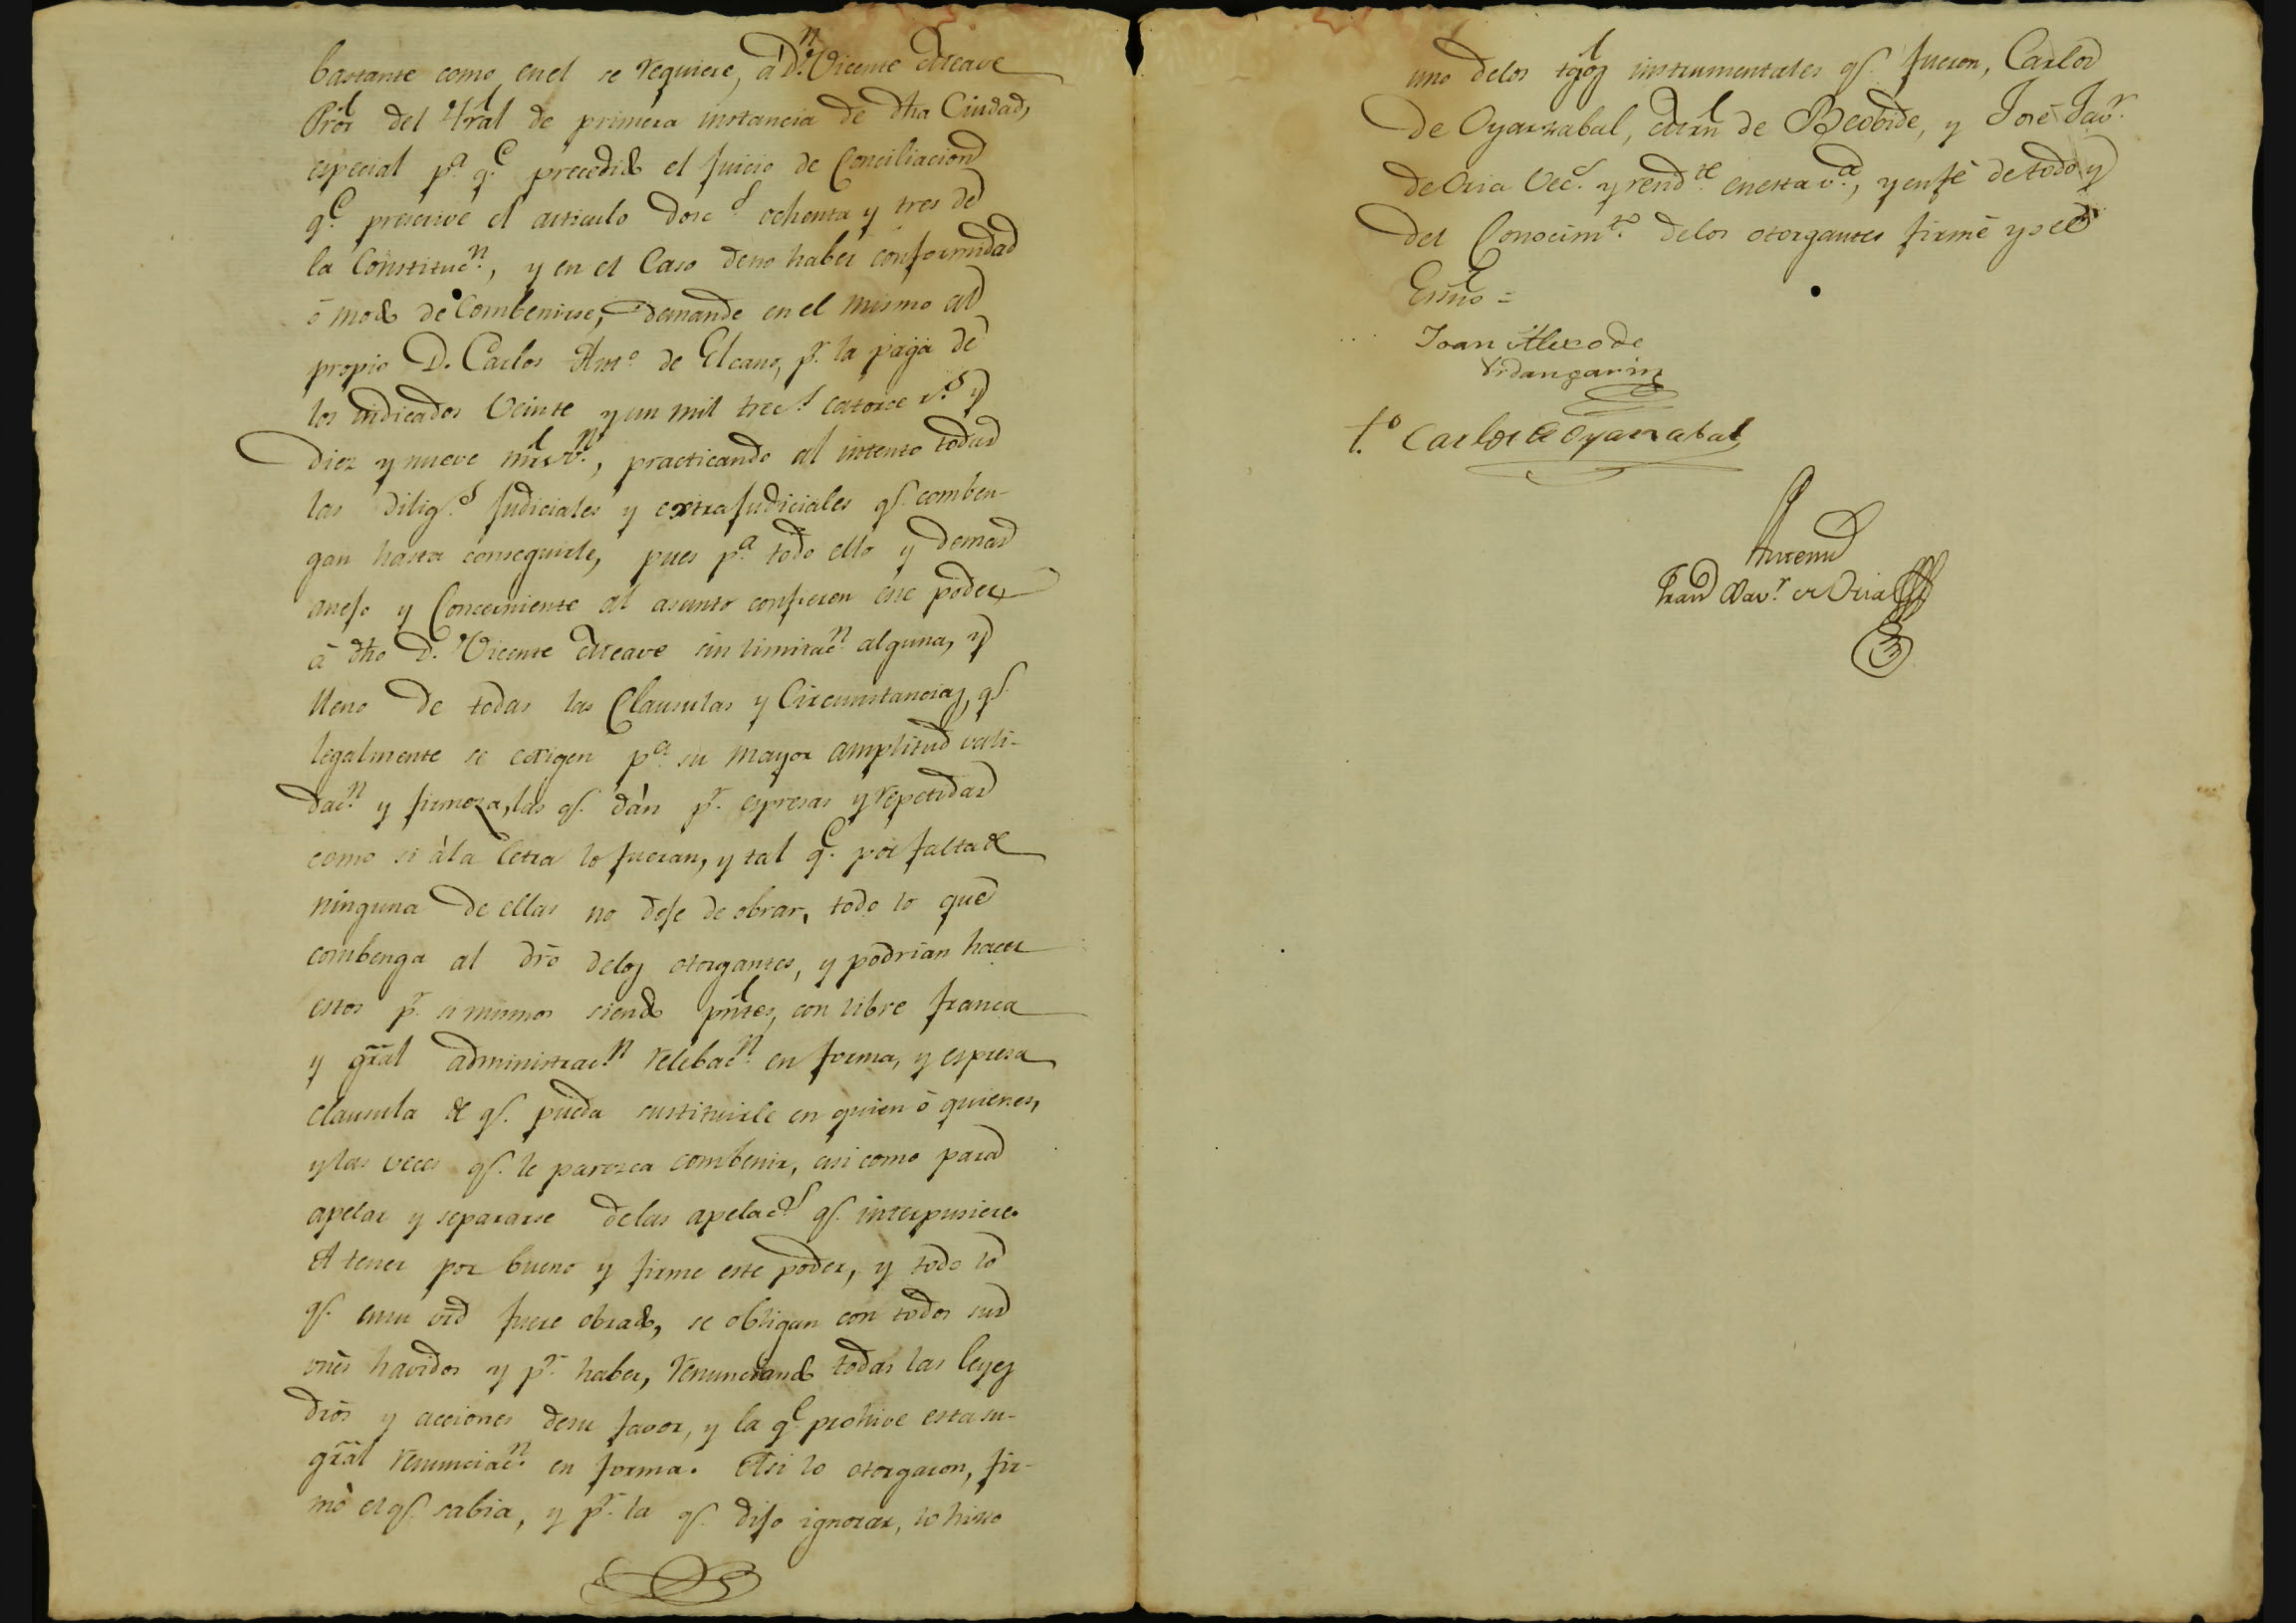 bastante como en el se requiere, á Dn. Vicente Aleave
Prór del Tral de primera instancia de dha Ciudad,
especial pa. qe. precedido el juicio de Conciliacion
qe. prescrive el articulo dosc.s ochenta y tres de
la Constitucn., y en el Caso de no haber conformidad
ó modo de Combenirse, demande en el mismo al
propio D. Carlos Anto. de Elcano, pr. la paga de
los indicados Veinte y un mil trecs. catorce rs. y
Diez y nueve mrs vn., practicando al intento todas
las Diligs. Judiciales y extrajudiciales qs. comben-
gan hasta conseguirle, pues pa. todo ello y demas
anejo y Concerniente al asunto confieren ese poder
á dho D. Vicente Aleave sin limitacn. alguna, y
lleno de todas las Clausulas y Circunstancias, qs.
legalmente se exigen pa. su mayor amplitud vali-
dacn. y firmeza, las qs. dán pr. espresas y repetidas
como si á la letra lo fueran, y tal qe. por falta de
ninguna de ellas no deje de obrar, todo lo que
combenga al dro de los otorgantes, y podrian hacer
estos pr. si mismos siendo pntes, con libre franca
y gral administracn. relebacn. en forma, y espresa
clausula de qs. pueda sustituirle en quien ó quienes,
y las veces qs. le parezca combenir, asi como para
apelar y separarse de las apelacs. qs. interpusiere.
A tener por bueno y firme este poder, y todo lo
qs. en su vrd fuere obrado, se obligan con todos sus
vnes havidos y pr. haber, renunciando todas las leyes
dros y acciones de su favor, y la qe. prohive esta su
gral renunciacn. en forma. Asi lo otorgaron, fir-
mó el qs. sabia, y pr. la qs. dijo ignorar, lo hizo
uno de los tgos instrumentales qs. fueron, Carlos
de Oyarzabal, Mrn de Beobide, y José Javr.
de Oria Vecs. y rendte. en esta va., y en fé de todo y
del Conocimto. de los otorgantes firmé yo el
Essno =
Joan Alexo de
Vidaurzarin
to. Carlos de Oyarzabal
Antemi
Fran Xavr. de Oria